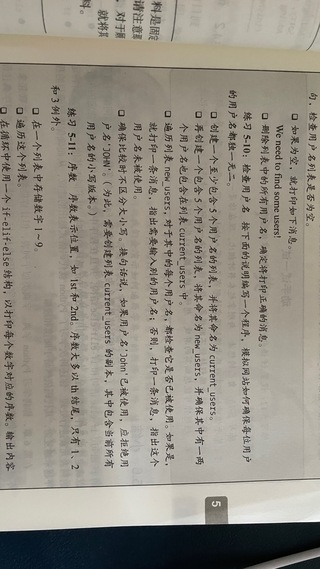 料是固定
请注意
，对于
就将
料。
句，检查用户名列表是否为空。
❑ 如果为空，就打印如下消息。
We need to find some users!
❑ 删除列表中的所有用户名，确定将打印正确的消息。
练习 5-10：检查用户名 按下面的说明编写一个程序，模拟网站如何确保每位用户
的用户名都独一无二。
❑ 创建一个至少包含 5 个用户名的列表，并将其命名为 current_users。
❑ 再创建一个包含 5 个用户名的列表，将其命名为 new_users，并确保其中有一两
个用户名也包含在列表 current_users 中。
❑ 遍历列表 new_users，对于其中的每个用户名，都检查它是否已被使用。如果是，
就打印一条消息，指出需要输入别的用户名；否则，打印一条消息，指出这个
用户名未被使用。
❑ 确保比较时不区分大小写。换句话说，如果用户名'John'已被使用，应拒绝用
户名'JOHN'。（为此，需要创建列表 current_users 的副本，其中包含当前所有
用户名的小写版本。）
练习 5-11：序数 序数表示位置，如 1st 和 2nd。序数大多以 th 结尾，只有 1、2
和 3 例外。
❑ 在一个列表中存储数字 1～9。
❑ 遍历这个列表。
❑ 在循环中使用一个 if-elif-else 结构，以打印每个数字对应的序数。输出内容
5